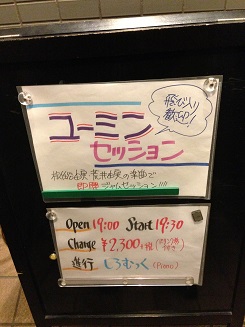 飛び入り
歓迎!
ユーミン
セッション
松任谷由実・荒井由実の楽曲で
即席ジャムセッション!!!
Open 19:00 Start 19:30
Charge ¥2,300 +税 (ドリンク
進行 しろむっく (Piano)